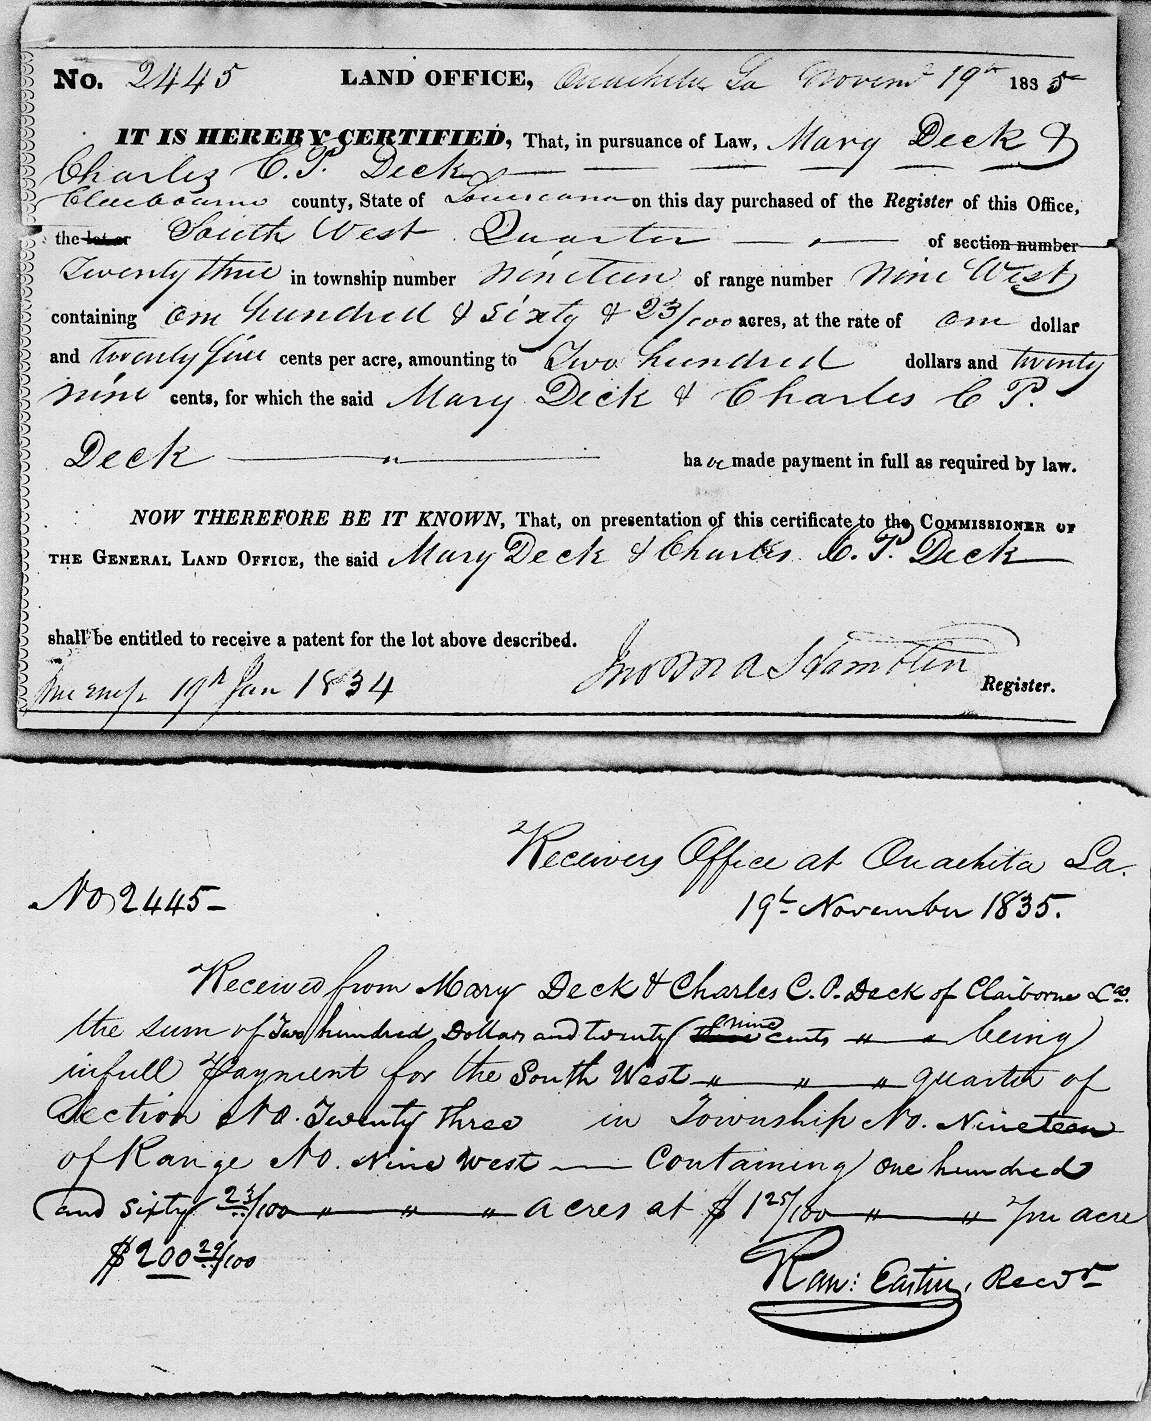 No. 2445 LAND OFFICE, Ouachita La Novemr 19th 1835
IT IS HEREBY CERTIFIED, That, in pursuance of Law, Mary Deck &
Charles C. P. Deck
Claibourne county, State of Louisiana on this day purchased of the Register of this Office,
the lot or South West Quarter of section number
Twenty three in township number nineteen of range number Nine West
containing One hundred & sixty & 23/100 acres, at the rate of One dollar
and twenty five cents per acre, amounting to Two hundred dollars and twenty
nine cents, for which the said Mary Deck & Charles C P.
Deck have made payment in full as required by law.
NOW THEREFORE BE IT KNOWN, That, on presentation of this certificate to the COMMISSIONER OF
THE GENERAL LAND OFFICE, the said Mary Deck & Charles C. P. Deck
shall be entitled to receive a patent for the lot above described.
19th Jan 1834 Hamblin Register.
Receivers Office at Ouachita La.
No 2445
19th November 1835.
Received from Mary Deck & Charles C. P. Deck of Claiborne Co.
the sum of Two hundred Dollars and twenty three nine cents " " being
in full Payment for the South West " " " quarter of
Section No. Twenty three in Township No. Nineteen
of Range No. Nine West Containing One hundred
and sixty 23/100 " " " acres at $ 1 25/100 " " per acre
$200 29/100
Raw: Eastin, Recvr